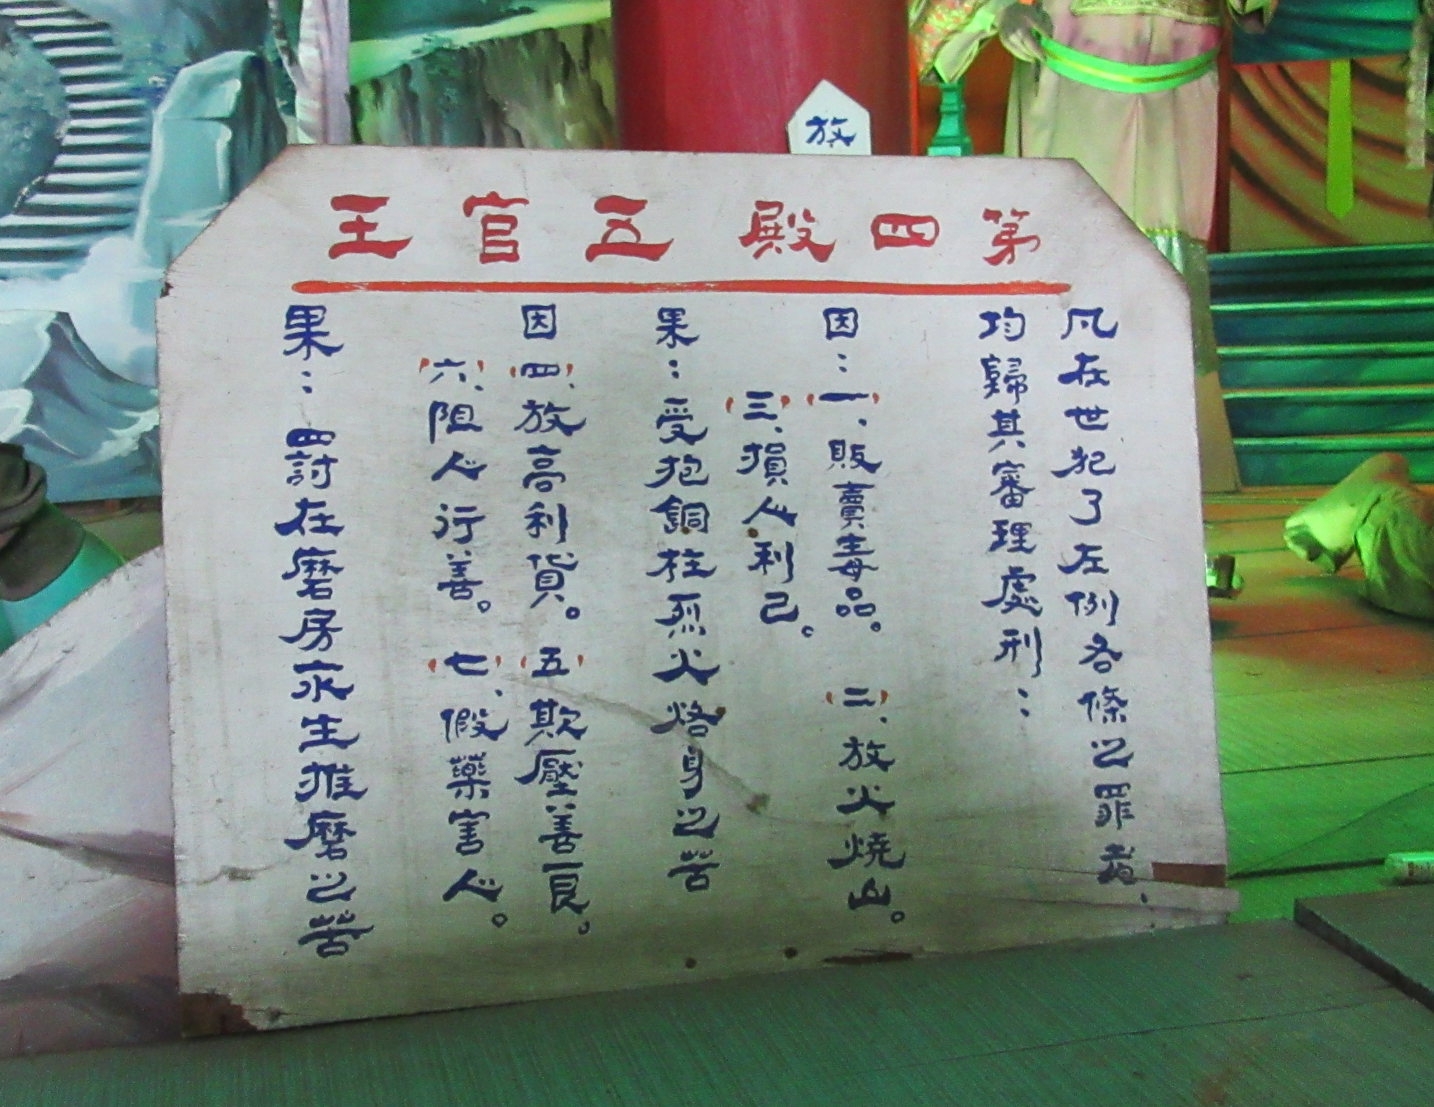 放
第四殿五官王
凡在世犯了左例各條之罪者、
均歸其審理處刑：
因：(一)、販賣毒品。(二)、放火燒山。
(三)、損人利己。
果：受抱銅柱烈火烙身之苦
因(四)、放高利貸。(五)欺壓善良。
(六)、阻人行善。(七)、假藥害人。
果：四討在磨房永生推磨之苦